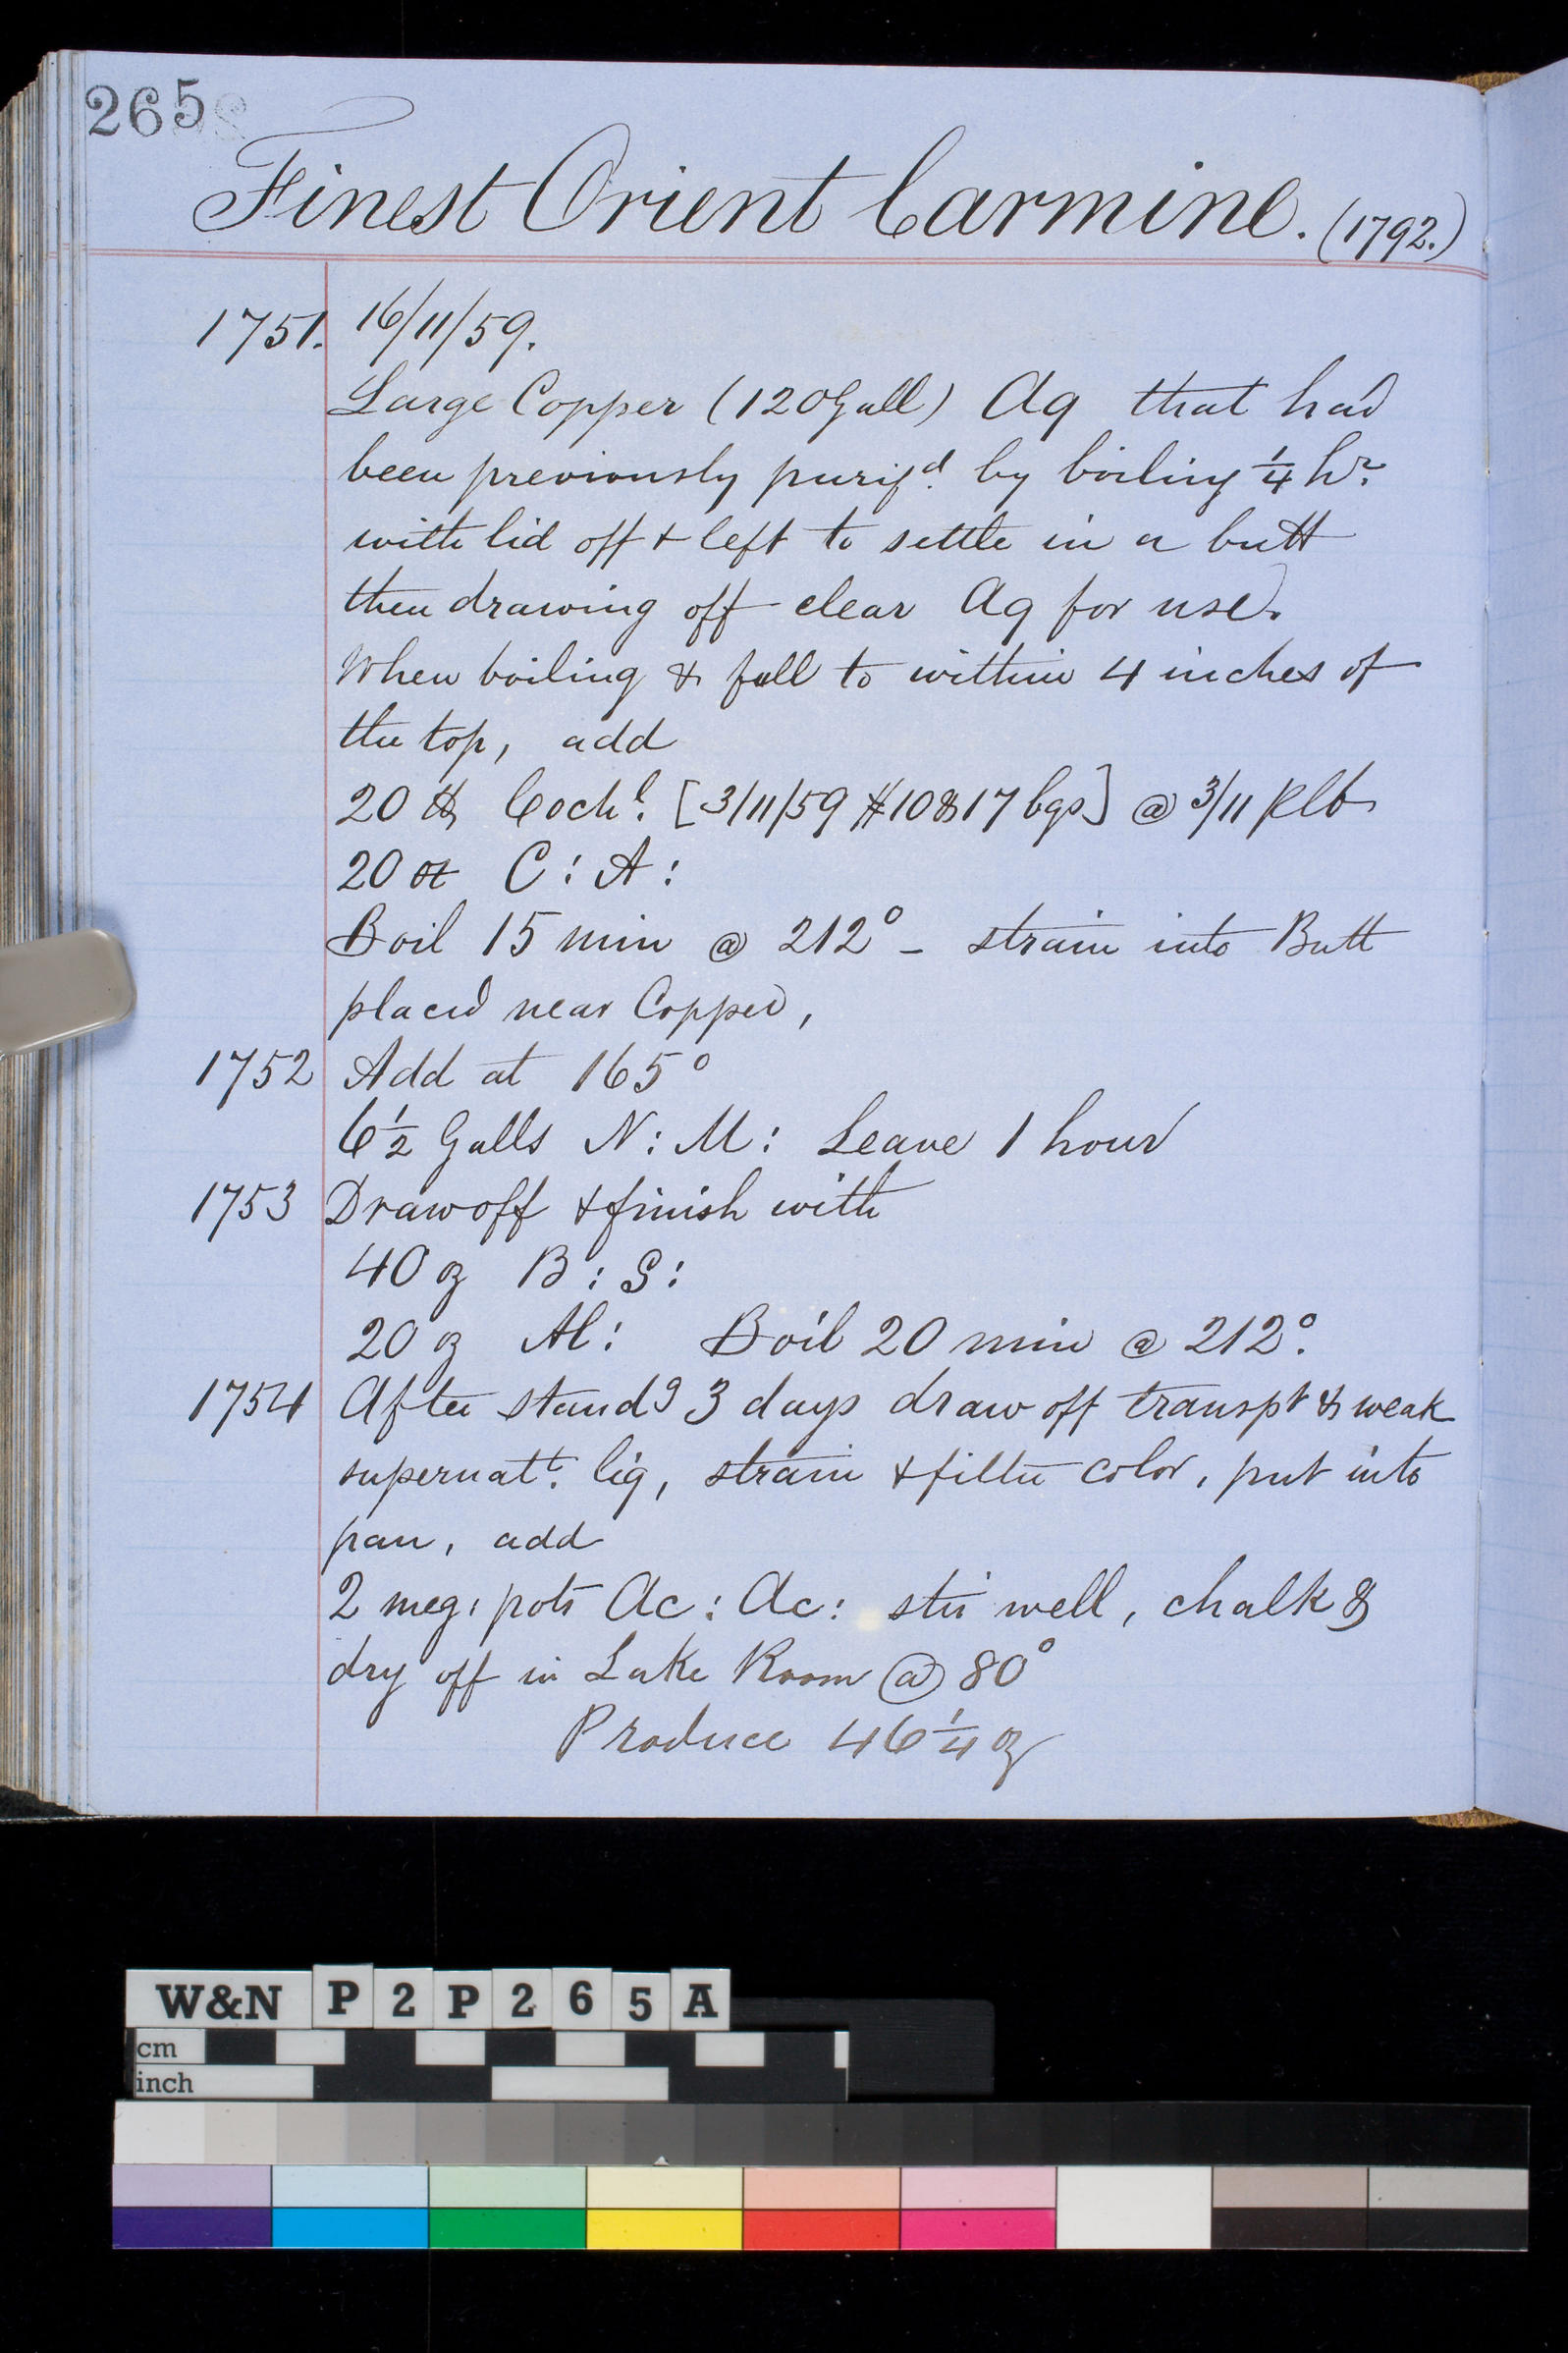 265
Finest Orient Carmine. (1792.)
1751. 16/11/59.
Large Copper (120 Gall) Aq that had
been previously purifd. by boiling 1/4 hr.
with lid off & left to settle in a butt
then drawing off clear Aq for use.
When boiling & full to within 4 inches of
the top, add
20 lb Cochl. [3/11/59 #10817 bgs] @ 3/11 P lb
20 oz C: A:
Boil 15 min @ 212° - strain into Butt
placed near Copper,
1752 Add at 165°
6 1/2 Galls N: M: Leave 1 hour
1753 Draw off & finish with
40 oz B: S:
20 oz Al: Boil 20 min @ 212°.
1754 After standg 3 days draw off transpt & weak
supernatt. liq, strain & filter color, put into
pan, add
2 meg: pots Ac: Ac: stir well, chalk &
dry off in Lake Room @ 80°
Produce 46 1/4 oz
W&N P2P265A
cm
inch